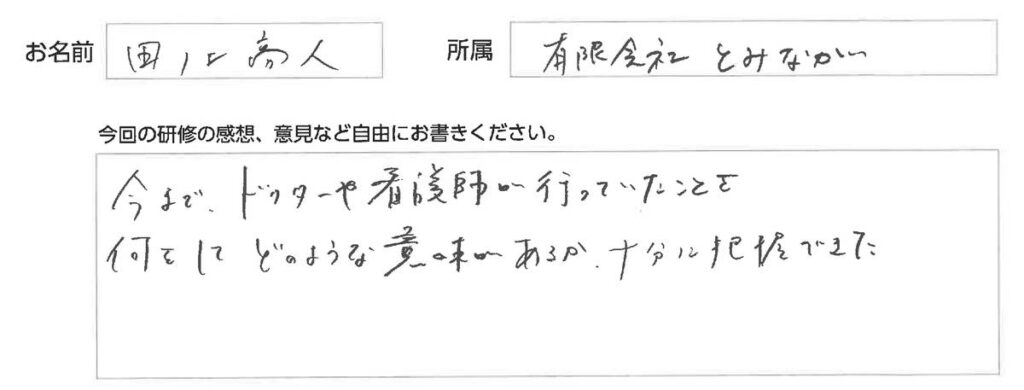 お名前 田 人 所属 有限会社 とみなが
今回の研修の感想、意見など自由にお書きください。
今まで、ドクターや看護師が行っていたことを
何をして どのような意味があるか、十分に把握できた